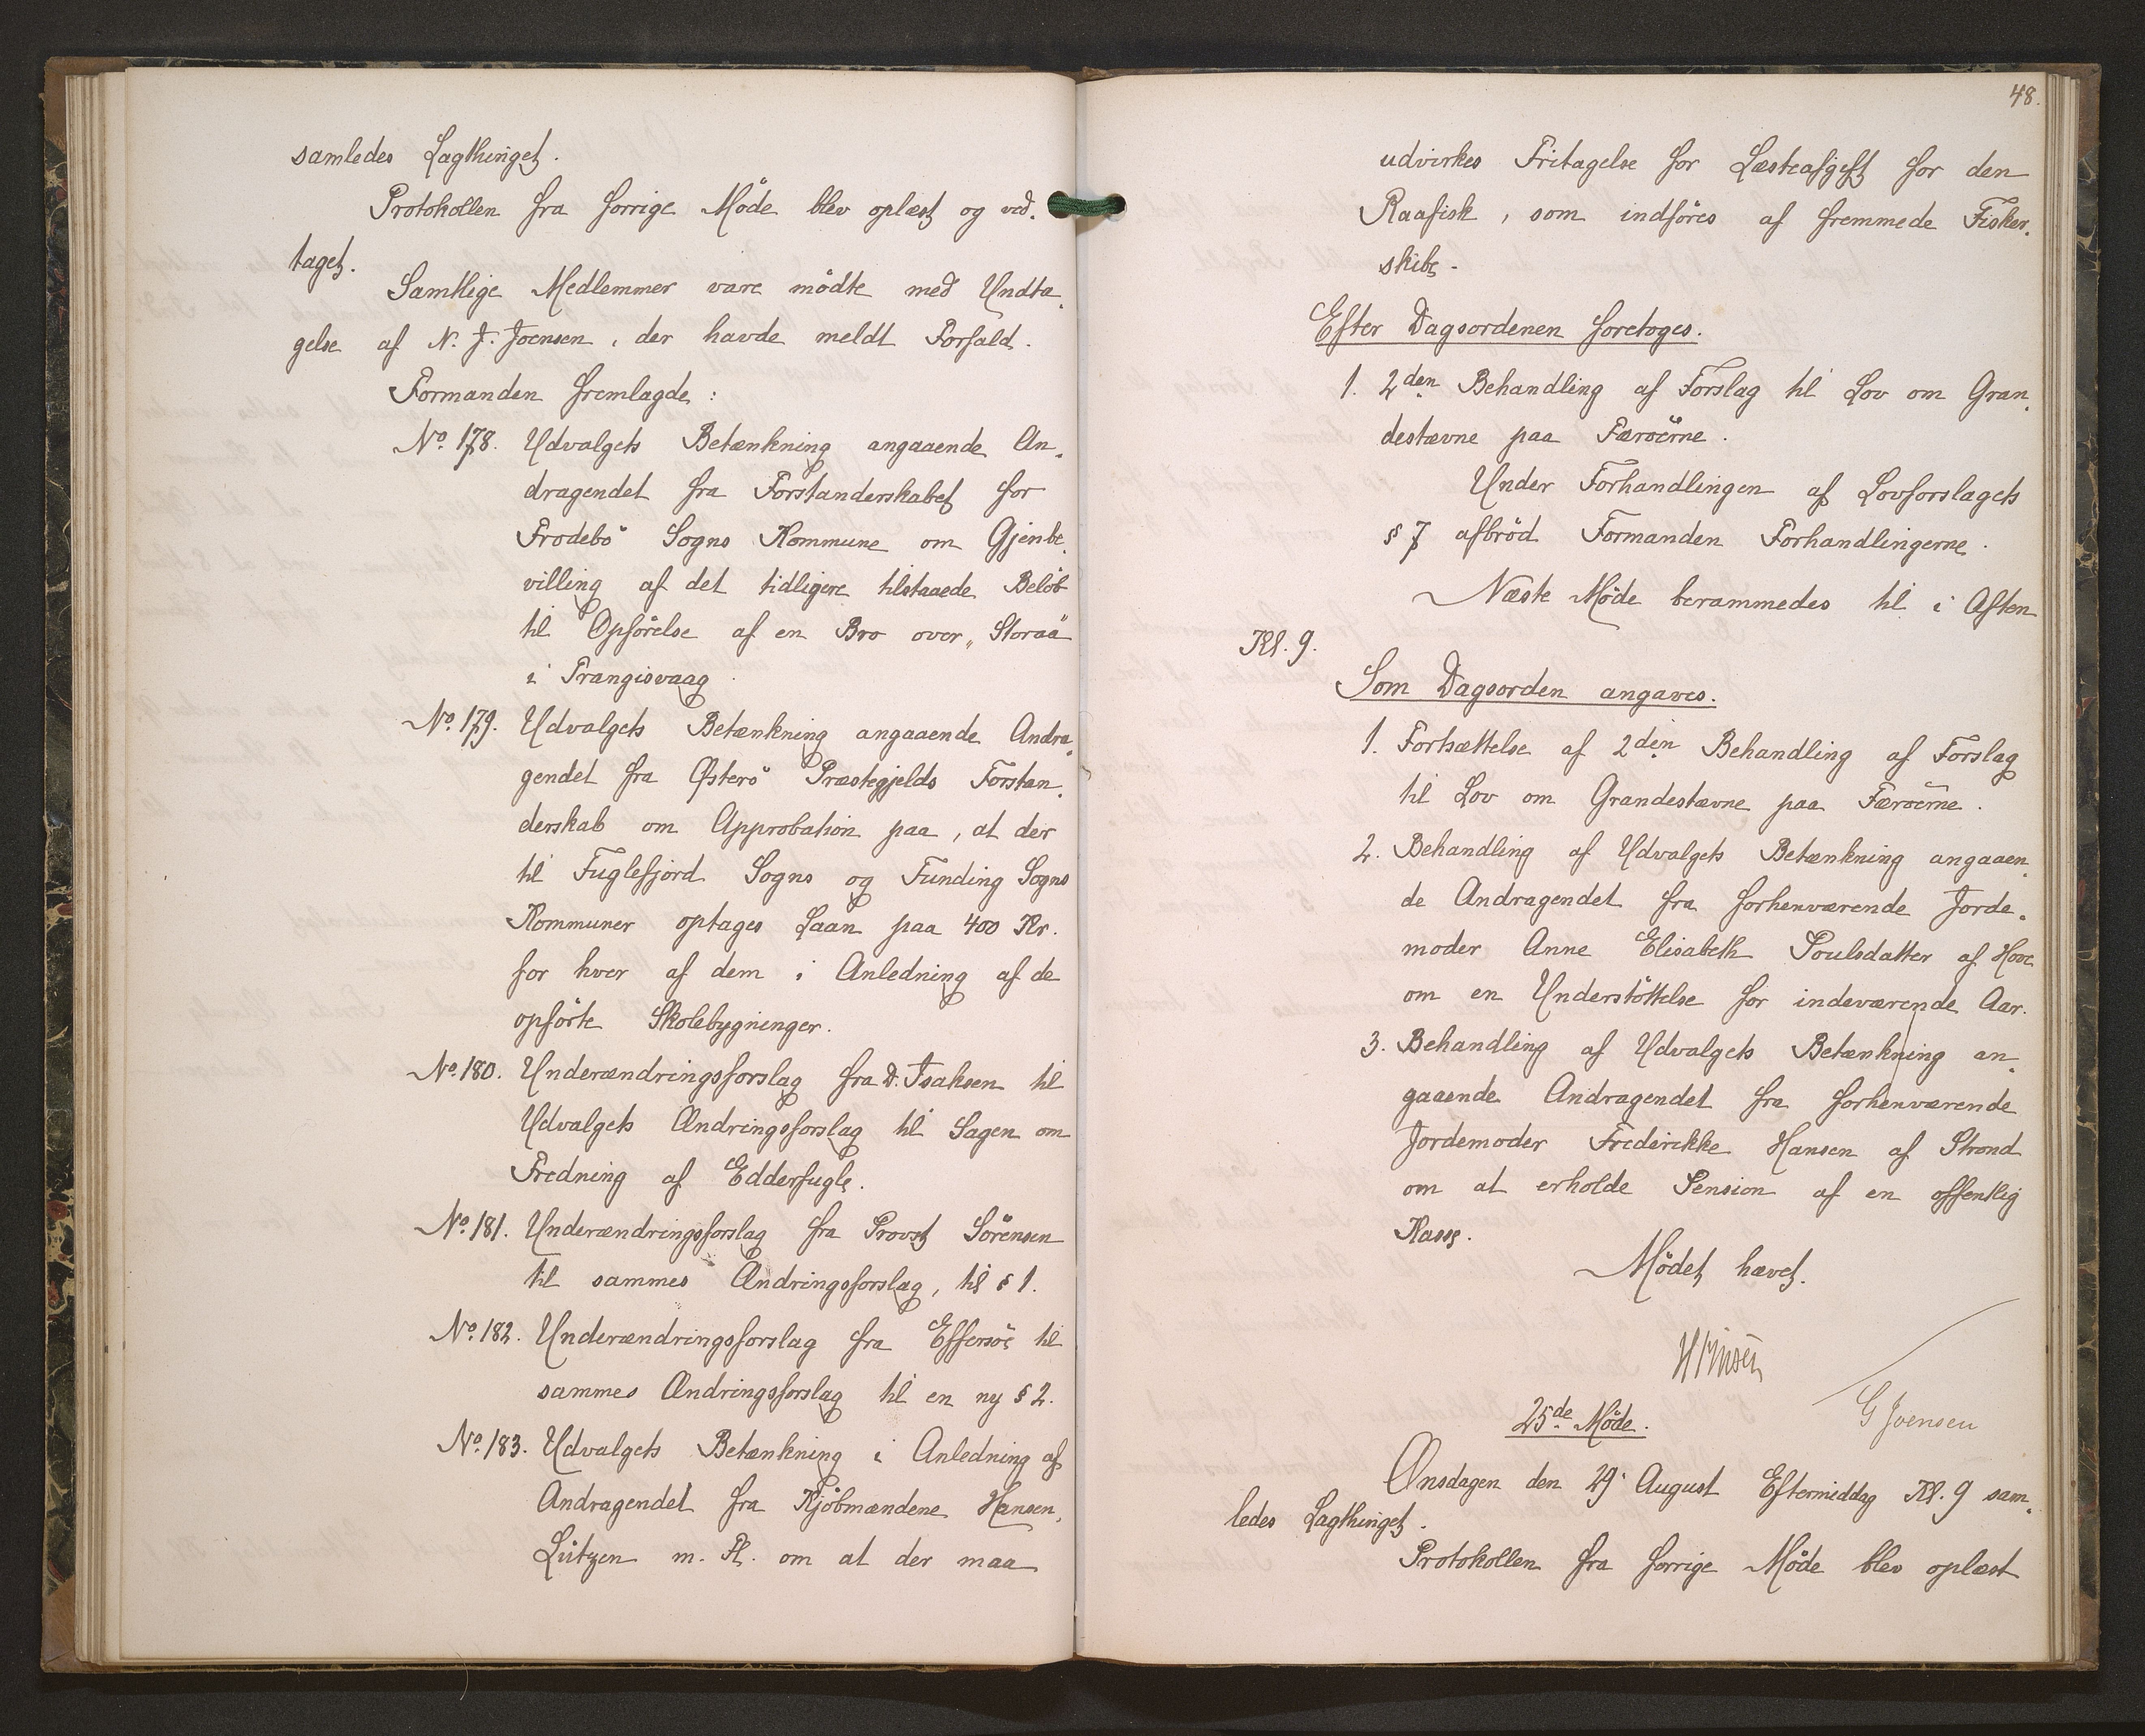 samledes Lagthinget.
Protokollen fra forrige Möde blev oplæst og ved-
taget.
Samtlige Medlemmer vare mödte med Undta-
gelse af N. J. Joensen, der havde meldt Forfald.
Formanden fremlagde:
No. 178. Udvalgets Betænkning angaaende An-
dragendet fra Forstanderskabet for
Frodebö Sogns Kommune om Gjenbe-
villing af det tidligere tilstaaede Belöb
til Opförelse af en Bro over „Storaa“
i Trangisvaag.
No. 179. Udvalgets Betænkning angaaende Andra-
gendet fra Österö Præstegjelds Forstan-
derskab om Approbation paa, at der
til Fuglefjord Sogns og Funding Sogns
Kommuner optages Laan paa 400 Kr.
for hver af dem i Anledning af de
opförte Skolebygninger.
No. 180. Underændringsforslag fra D. Isaksen til
Udvalgets Ændringsforslag til Sagen om
Fredning af Edderfugle.
No. 181. Underændringsforslag fra Provst Sörensen
til sammes Ændringsforslag, til § 1.
No. 182. Underændringsforslag fra Effersöe til
sammes Ændringsforslag til en ny § 2.
No. 183. Udvalgets Betænkning i Anledning af
Andragendet fra Kjöbmændene Hansen,
Lützen m. Fl. om at der maa
48.
udvirkes Fritagelse for Læsteafgift for den
Raafisk, som indföres af fremmede Fisker-
skibe.
Efter Dagsordenen foretoges.
1. 2den Behandling af Forslag til Lov om Gran-
destævne paa Færöerne.
Under Forhandlingen af Lovforslagets
§ 7 afbröd Formanden Forhandlingerne.
Næste Möde berammedes til i Aften
Kl. 9.
Som Dagsorden angaves.
1. Fortsættelse af 2den Behandling af Forslag
til Lov om Grandestævne paa Færöerne.
2. Behandling af Udvalgets Betænkning angaaen-
de Andragendet fra forhenværende Jorde-
moder Anne Elisabeth Poulsdatter af Hove
om en Understöttelse for indeværende Aar.
3. Behandling af Udvalgets Betænkning an-
gaaende Andragendet fra forhenværende
Jordemoder Frederikke Hansen af Strond
om at erholde Pension af en offentlig
Kasse.
Mödet hævet.
G Joensen
25de Möde.
Onsdagen den 29. August Eftermiddag Kl. 9 sam-
ledes Lagthinget.
Protokollen fra forrige Möde blev oplæst